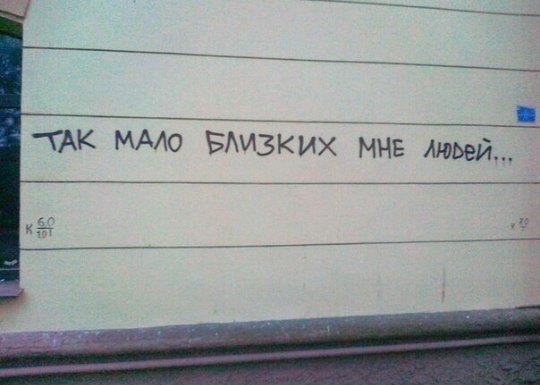 ТАК МАЛО БЛИЗКИХ МНЕ ЛЮДЕЙ...
К 60